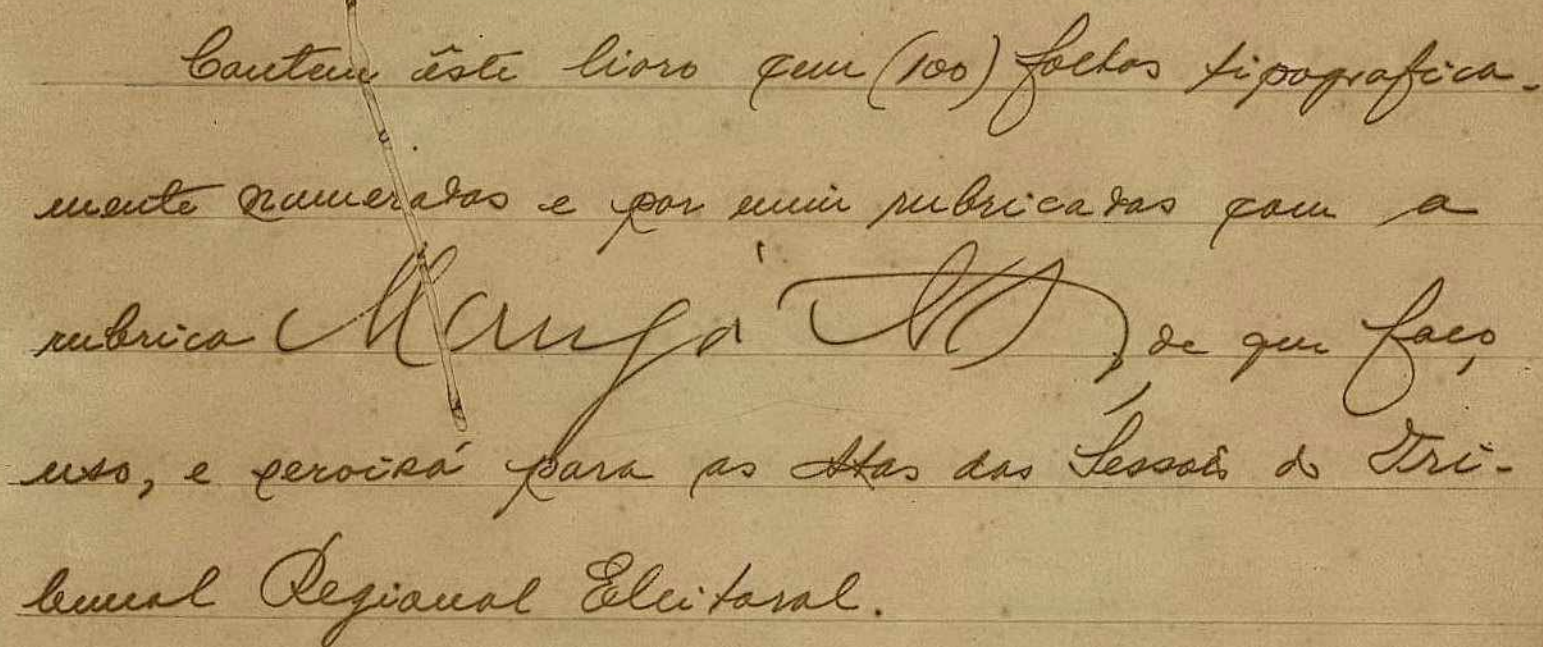 Contem êste livro cem (100) folhas tipografica-
mente numeradas e por mim rubricadas com a
rubrica , de que faço
uso, e servirá para as Atas das Sessoẽs do Tri-
bunal Regional Eleitoral.